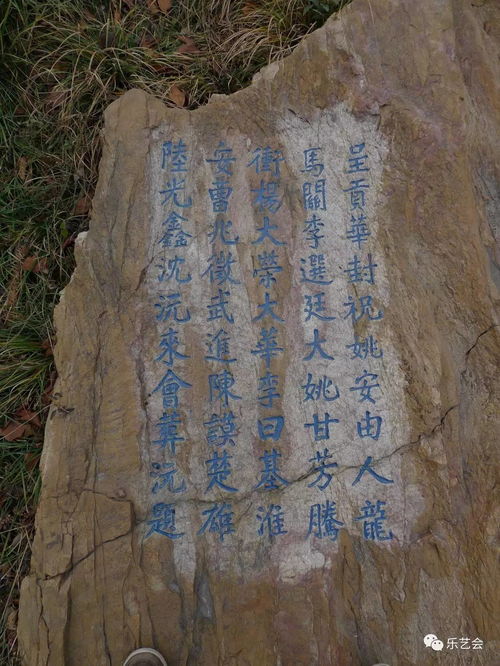 呈貢華封祝姚安由人龍
馬關李選廷大姚甘芳騰
衝楊大榮大華李曰基淮
安曹兆徵武進陳謨楚雄
陸光鑫沈沅來會葬沅題
乐艺会